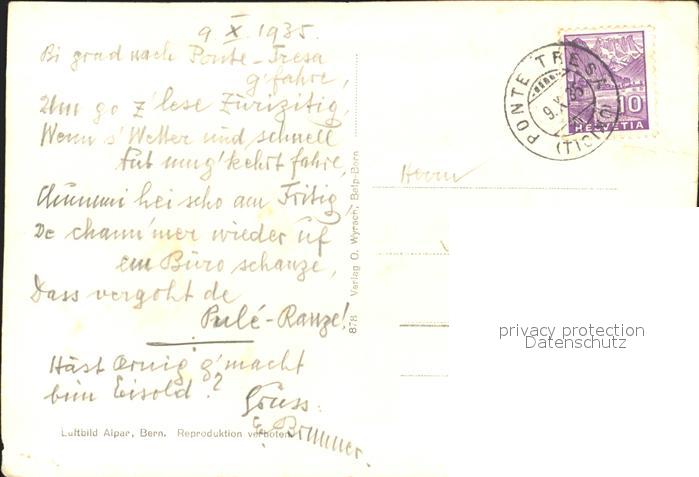 9 X. 1935.
Bi grad nach Ponte-Tresa
g'fahre,
Um go z'lese Zürizitig,
Wenn s'Wetter und schnell
tut umg'kehrt fahre,
Chummi hei scho am Fritig,
De chann'mer wieder uf
em Büro schanze,
Dass vergoht de
Pulé-Ranze!
Häst Ornig g'macht
bim Eisold?
Gruss:
E. Brunner.
Luftbild Alpar, Bern. Reproduktion verboten.
878 Verlag O. Wyrsch, Belp-Bern
PONTE TRESA
(TICINO)
9.X.35
10
HELVETIA
Herrn
privacy protection
Datenschutz